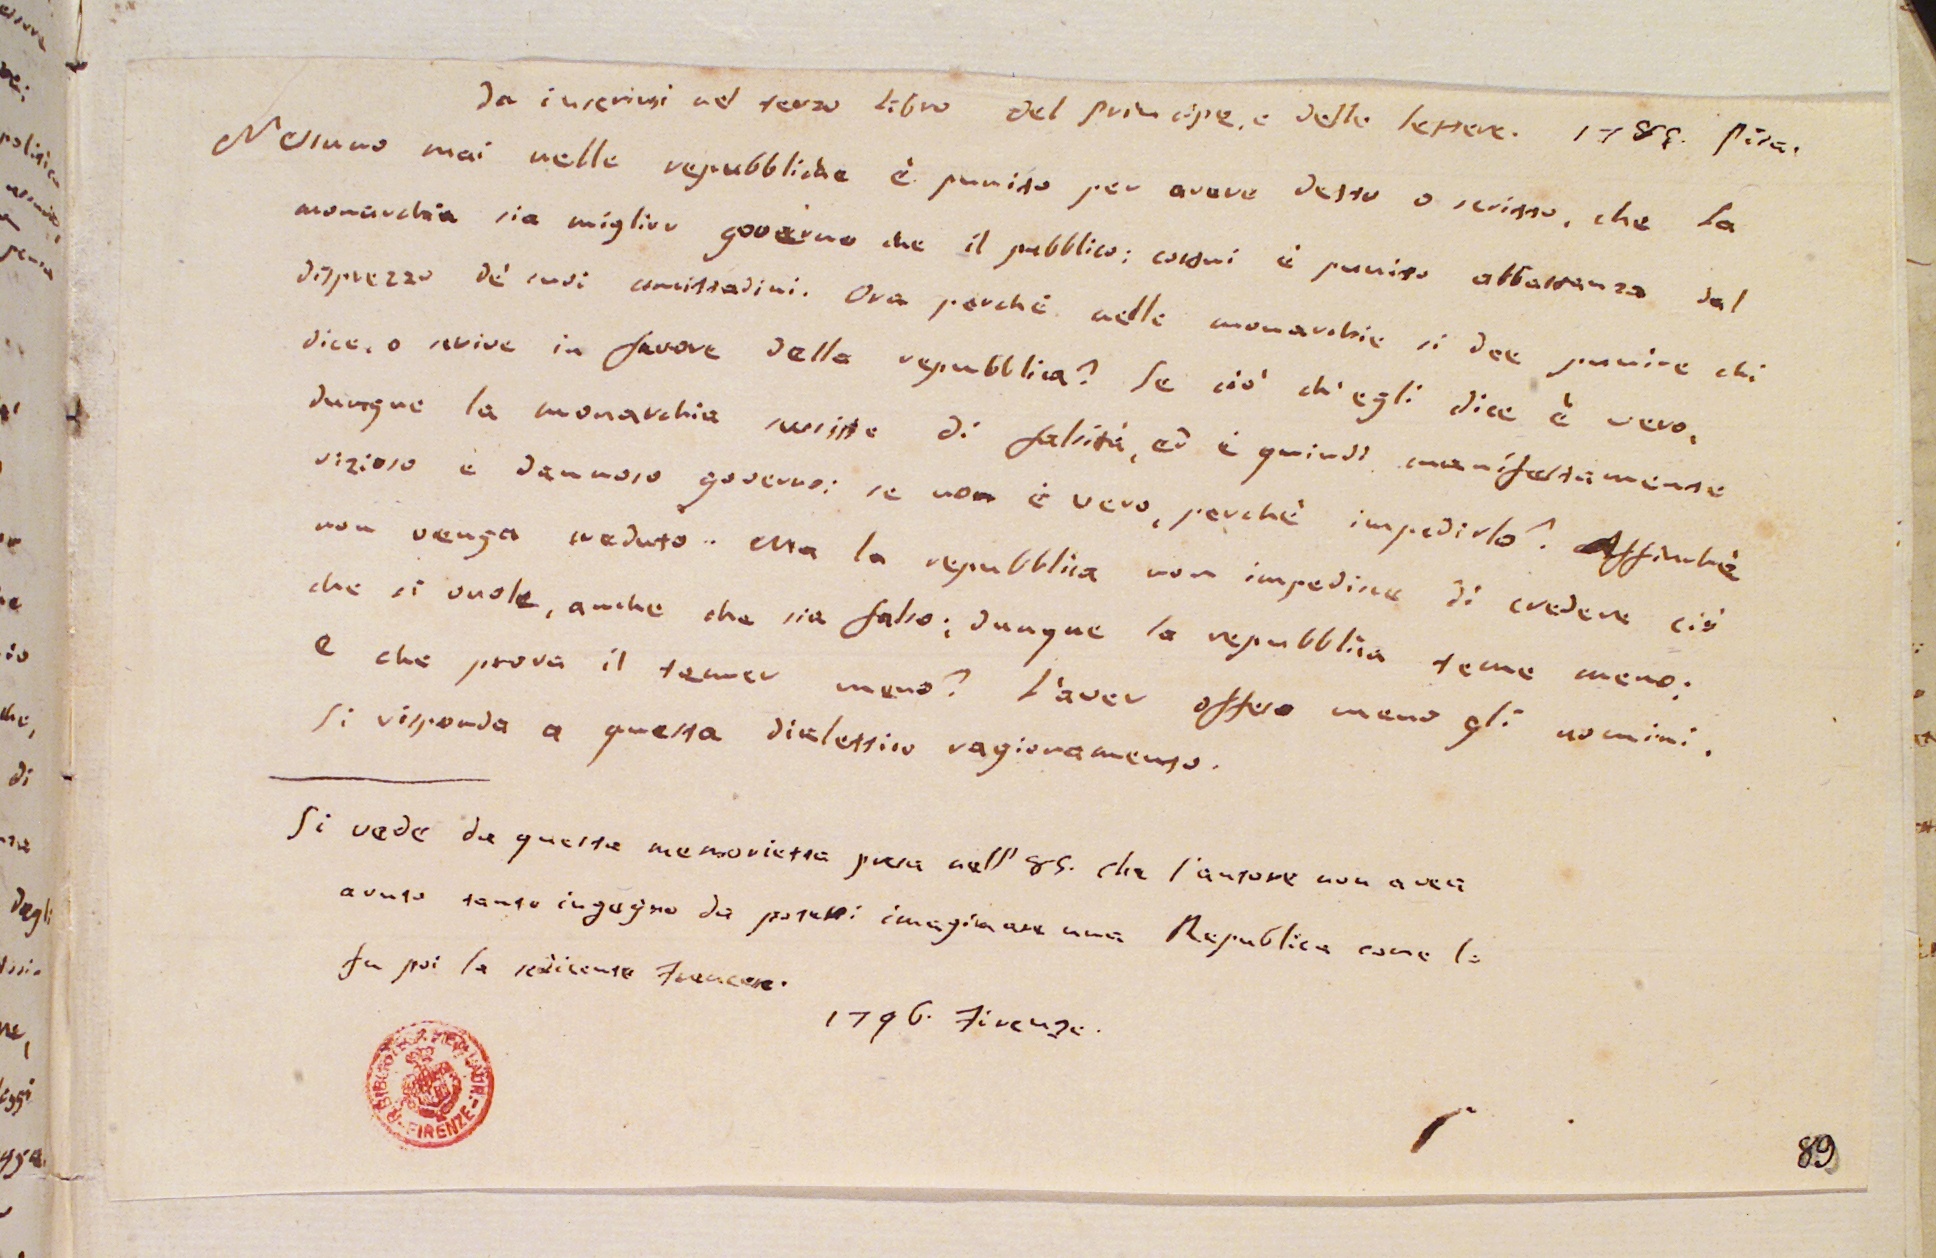 Da inserirsi nel terzo libro del Principe, e delle lettere. 1785. Pisa.
Nessuno mai nelle repubbliche è punito per avere detto o scritto, che la
monarchia sia miglior governo che il pubblico; costui è punito abbastanza dal
disprezzo de' suoi concittadini. Ora perchè nelle monarchie si dee punire chi
dice, o scrive in favore della repubblica? Se ciò ch'egli dice è vero,
dunque la monarchia sussiste di falsità, ed è quindi manifestamente
vizioso e dannoso governo: se non è vero, perchè impedirlo? Affinchè
non venga creduto.. Ma la repubblica non impedisce di credere ciò
che si vuole, anche che sia falso; dunque la repubblica teme meno;
e che prova il temer meno? L'aver offeso meno gli uomini.
Si risponda a questo dialettico ragionamento.
Si vede da questa memorietta presa nell' 85. che l'autore non avea
avuto tanto ingegno da potersi imaginare una Republica come lo
fu poi la sedicente Francese.
1796. Firenze.
FIRENZE
89